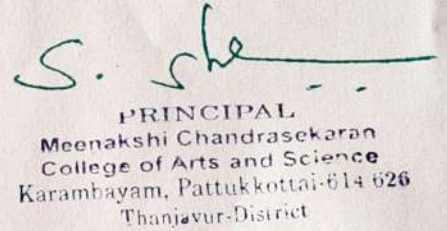 S.
PRINCIPAL
Meenakshi Chandrasekaran
College of Arts and Science
Karambayam, Pattukkottai-614 626
Thanjavur-District